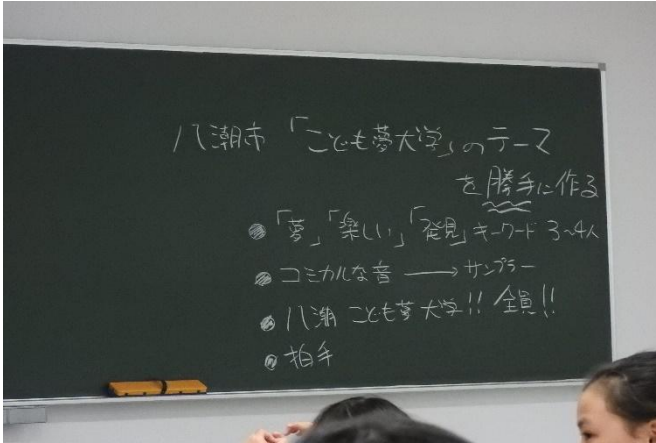 八潮市「こども夢大学」のテーマ
を勝手に作る
●「夢」「楽しい」「発見」キーワード 3~4人
●コミカルな音 → サンプラー
●八潮 こども夢大学!! 全員!!
●拍手